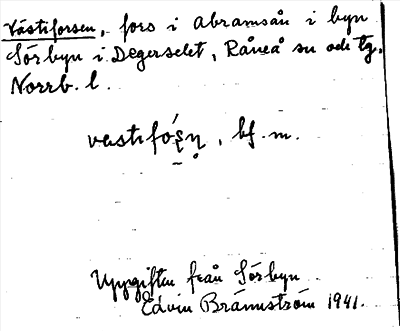 Västiforsen, fors i Abramsån i byn
Sörbyn i Degerselet, Råneå sn och tg,
Norrb. l.
bf. m.
Uppgiften från Sörbyn
Edvin Brännström 1941.